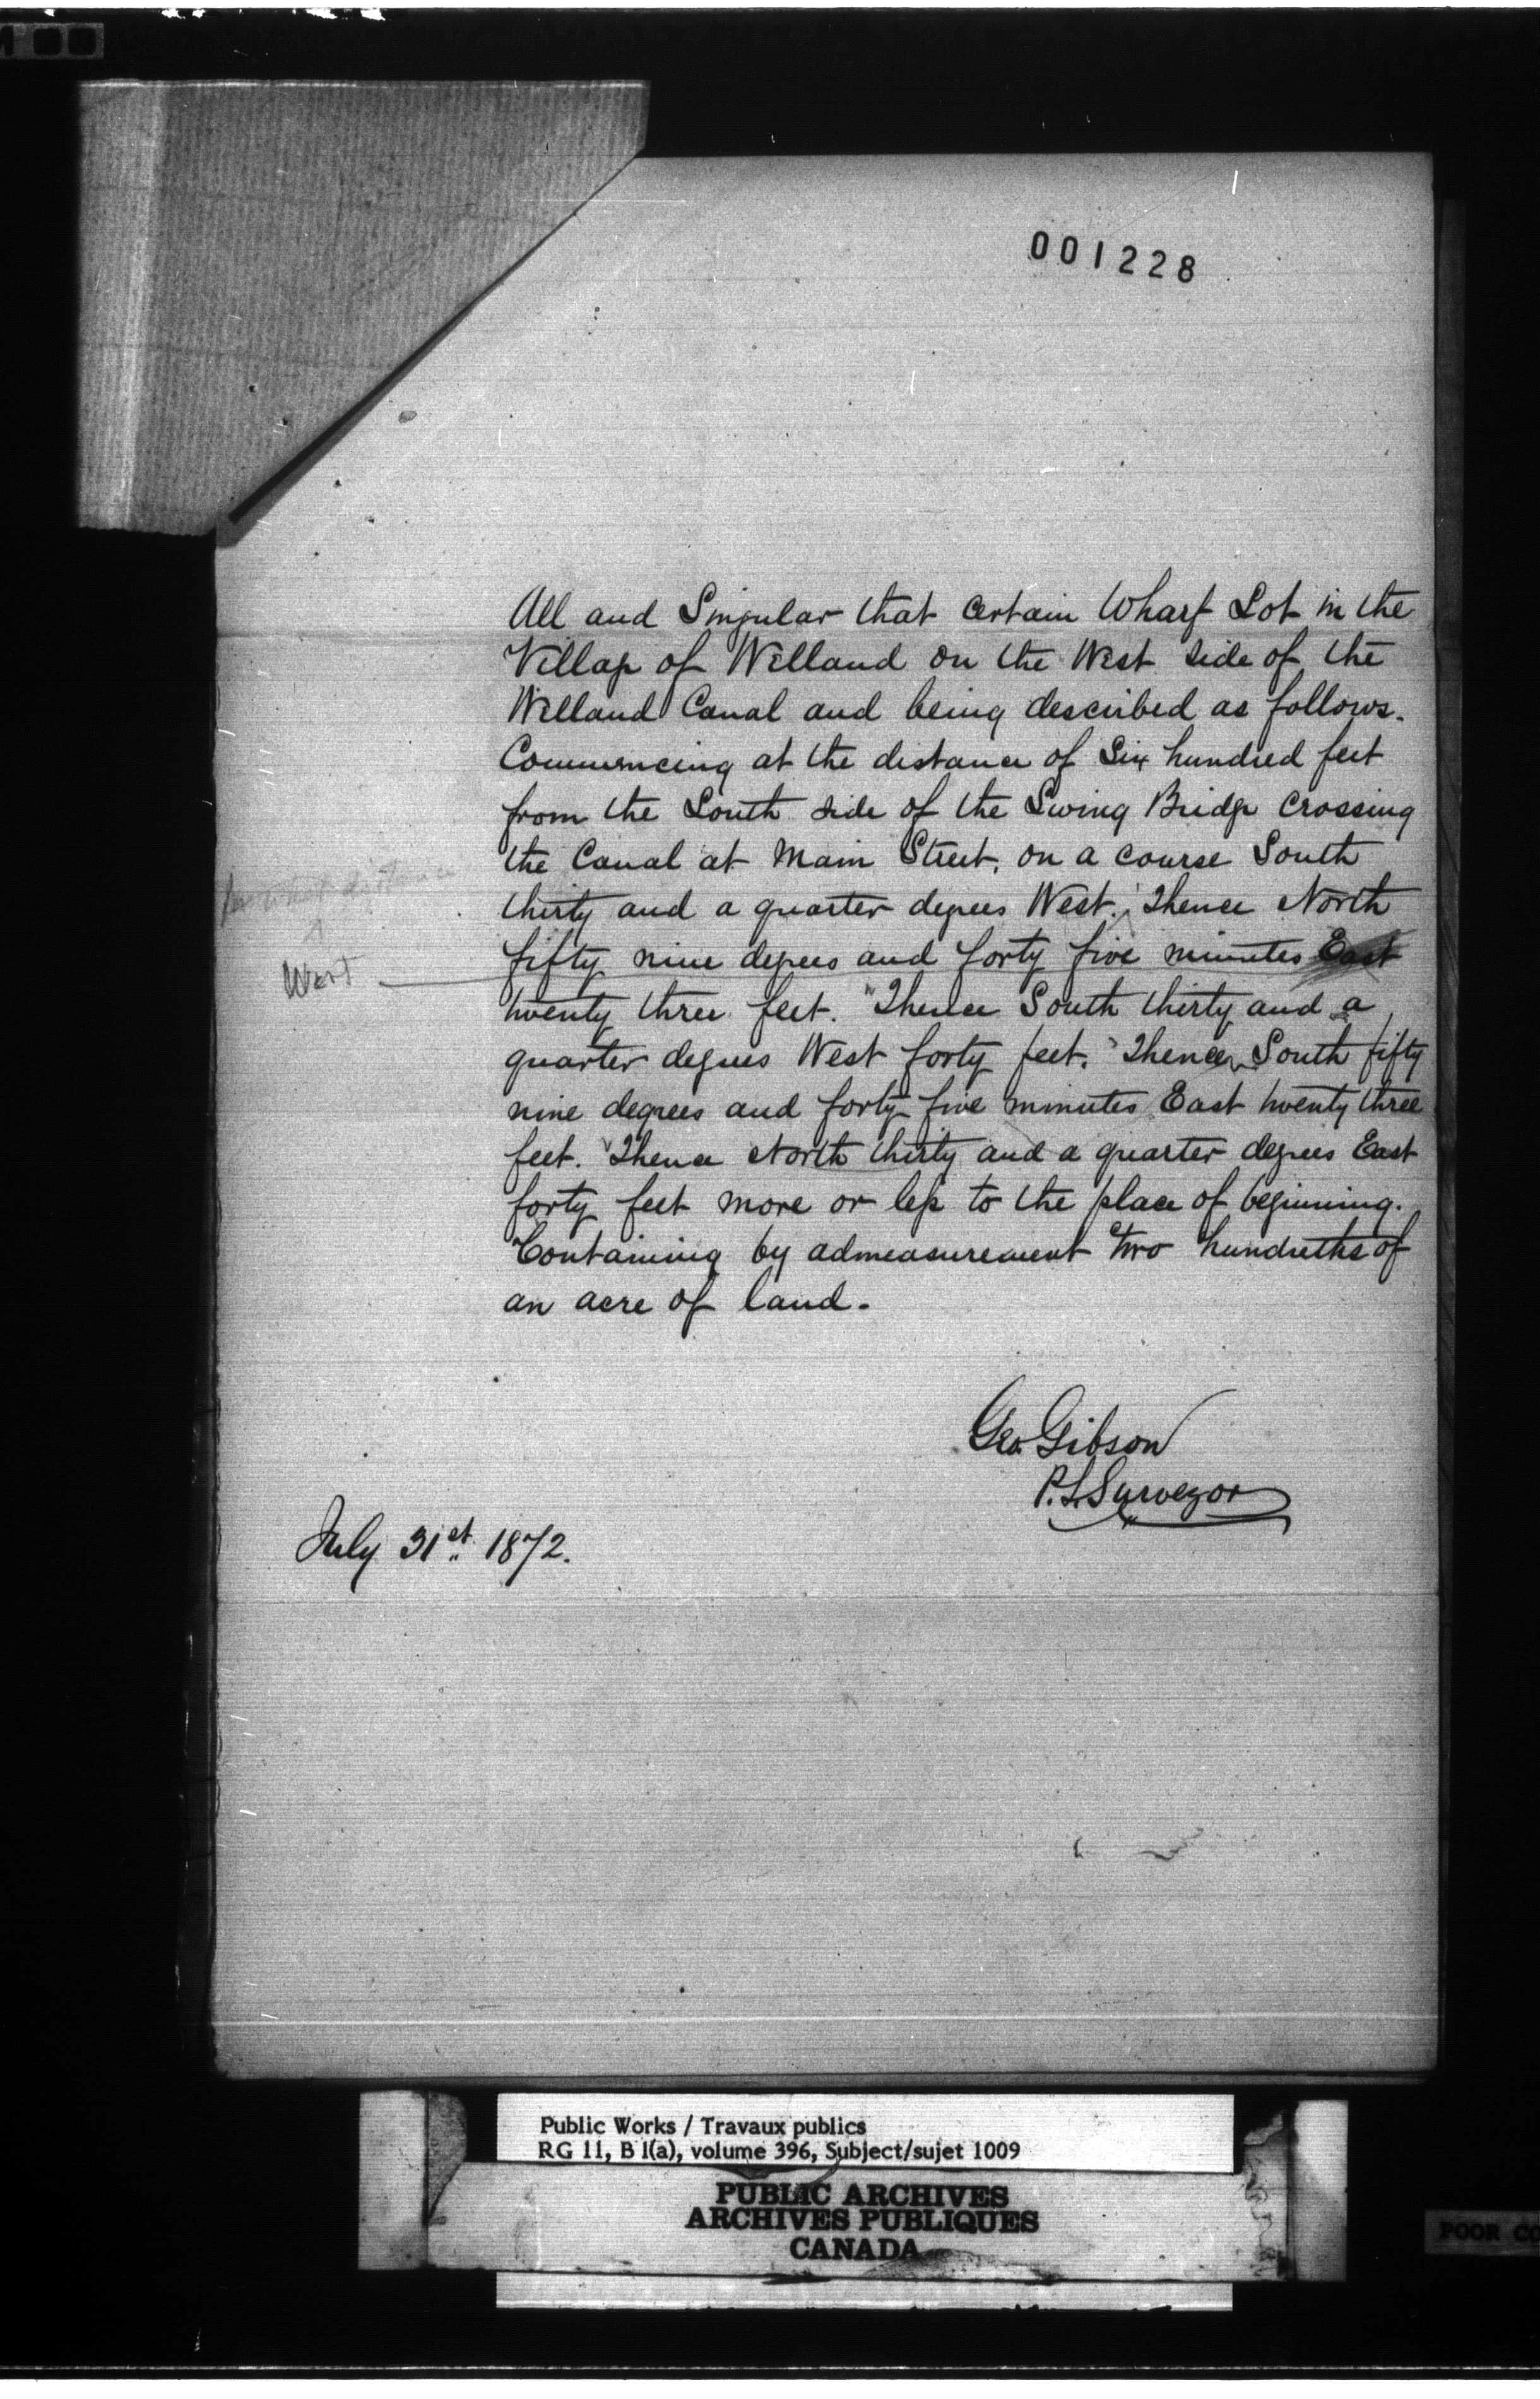 001228
All and Singular that certain Wharf Lot in the
Village of Welland on the West side of the
Welland Canal and being described as follows.
Commencing at the distance of Six hundred feet
from the South side of the Swing Bridge crossing
the Canal at Main Street, on a course South
thirty and a quarter degrees West. Thence North
fifty nine degrees and forty five minutes East
West
twenty three feet. Thence South thirty and a
quarter degrees West forty feet. Thence South fifty
nine degrees and forty five minutes East twenty three
feet. Thence North thirty and a quarter degrees East
forty feet more or less to the place of beginning.
Containing by admeasurement two hundreths of
an acre of land.
Geo. Gibson
P. L. Surveyor
July 31st 1872.
Public Works / Travaux publics
RG 11, B 1(a), volume 396, Subject/sujet 1009
PUBLIC ARCHIVES
ARCHIVES PUBLIQUES
CANADA
POOR